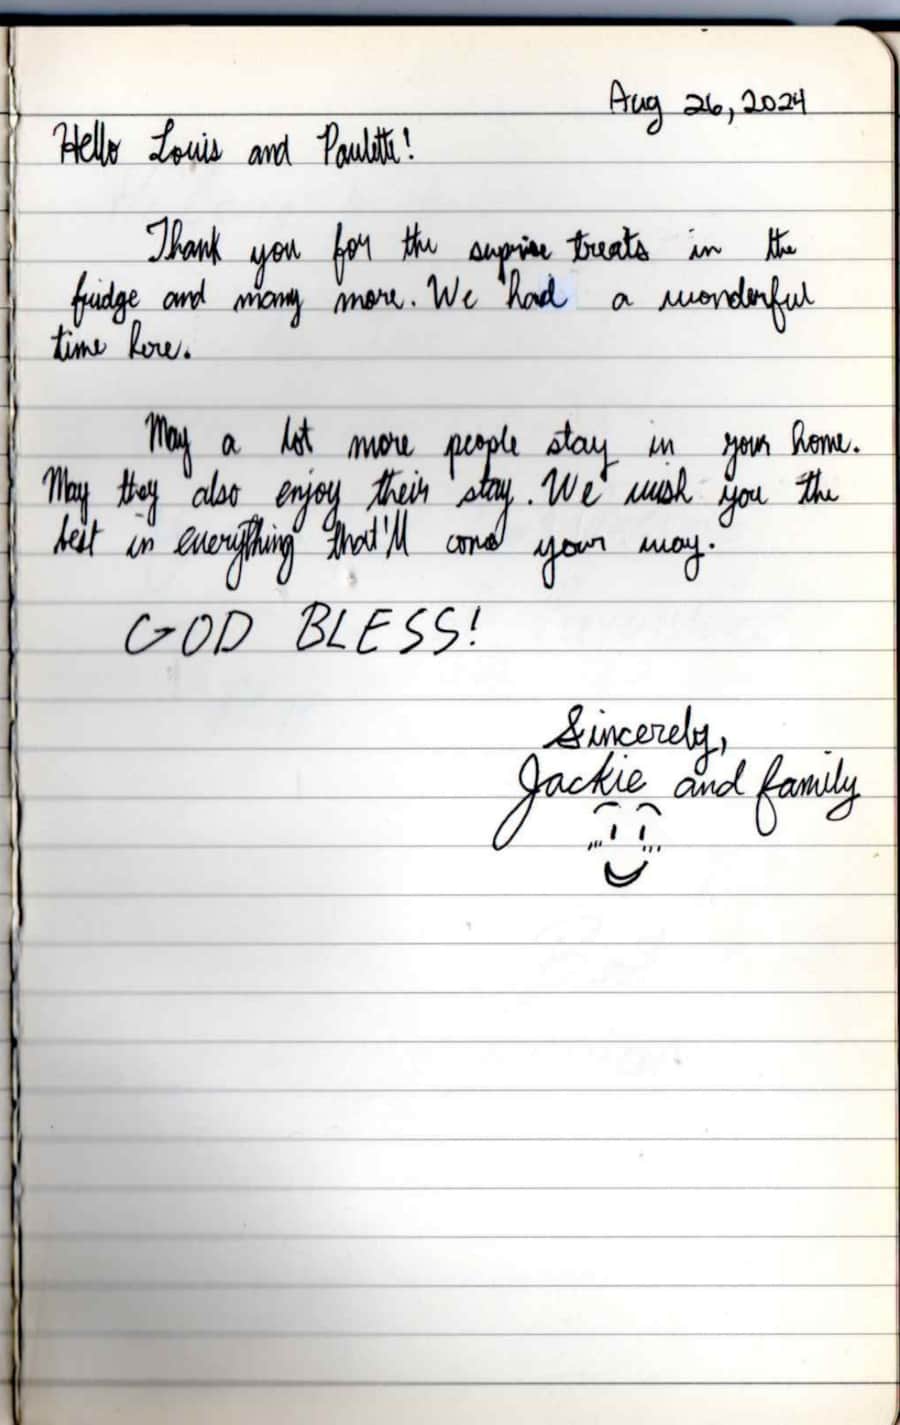 Aug 26, 2024
Hello Louis and Paulette!
Thank you for the suprise treats in the
fridge and many more. We had a wonderful
time here.
May a lot more people stay in your home.
May they also enjoy their stay. We wish you the
best in everything that'll come your way.
GOD BLESS!
Sincerely,
Jackie and family